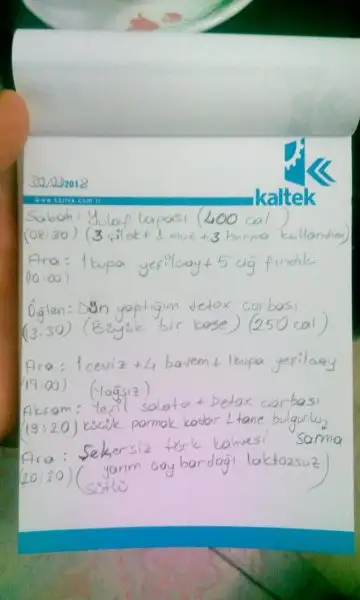 2018
www.kaltek.com.tr
kaltek
Sabah: Yulaf lapası (400 cal)
(08:30) (3 çilek + 1 muz + 3 hurma kullandım)
Ara: 1 kupa yeşilçay + 5 çiğ fındık
Öğlen: Dün yaptığım detox çorbası
(13:30) (Büyük bir kase) (250 cal)
Ara: 1 ceviz + 4 badem + 1 kupa yeşilçay
(17:00) (Yağsız)
Akşam: Yeşil salata + Detox çorbası
(19:20) küçük parmak kadar 1 tane bulgurlu sarma
Ara: Şekersiz türk kahvesi
(20:20) (yarım çay bardağı laktozsuz
sütlü)